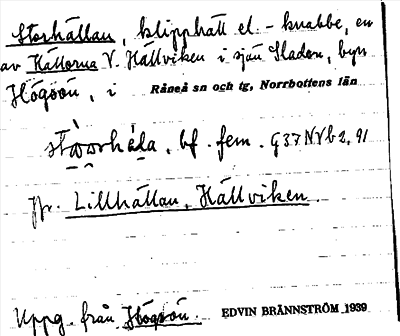 Storhällan, klipphäll el. - knabbe, en
av Hällorna V. Hällviken i sjön Sladan, byn
Högsön, i Råneå sn och tg, Norrbottens län
bf. fem. G37NVb2, 91
Jfr. Lillhällan, Hällviken.
Uppg. från Högsön. EDVIN BRÄNNSTRÖM 1939